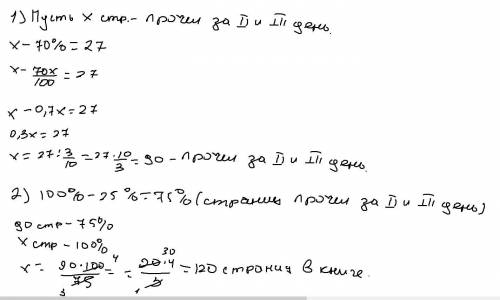 1) Пусть x стр. - прочел за II и III день.
x - 70% = 27
x - 70x/100 = 27
x - 0,7x = 27
0,3x = 27
x = 27 : 3/10 = 27 · 10/3 = 90 - прочел за II и III день.
2) 100% - 25% = 75% (страниц прочел за II и III день)
90 стр - 75%
x стр - 100%
x = 90·100 4/75 3 = 30 90·4/3 1 = 120 страниц в книге.